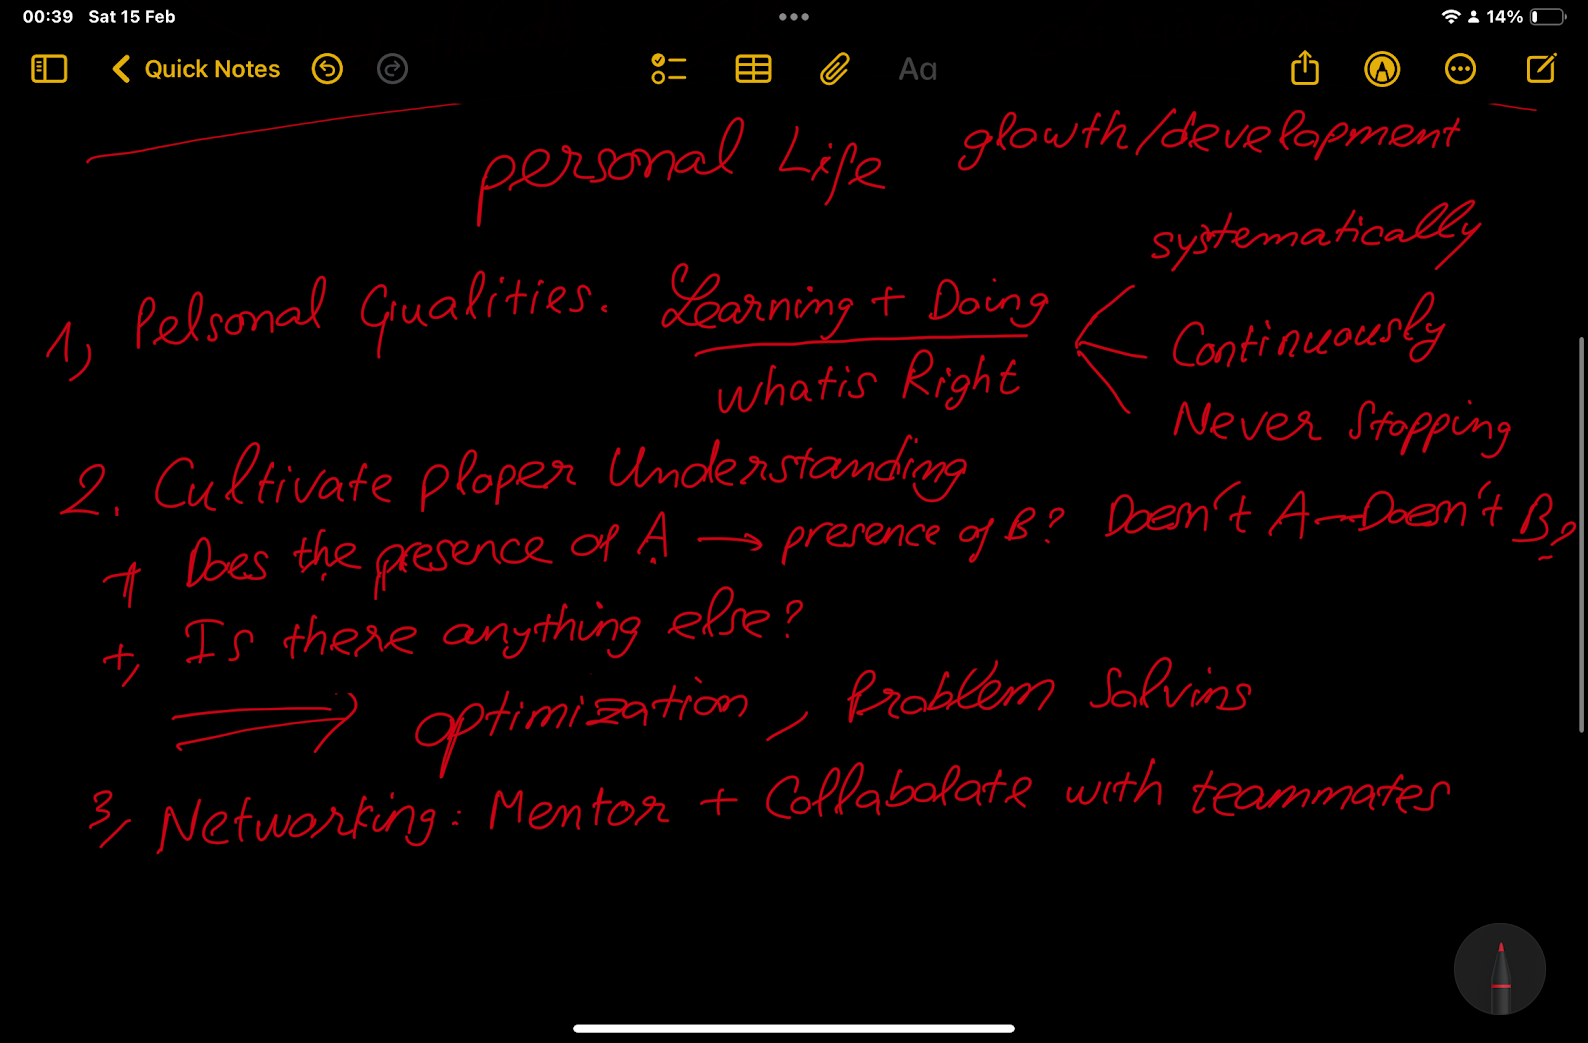 00:39 Sat 15 Feb 14%
Quick Notes Aa
personal Life glowth/development
systematically
1, Pelsonal Qualities. Learning + Doing
Continuously
what is Right
Never Stopping
2. Cultivate ploper Understanding
+ Does the presence of A → presence of B? Doesn't A - Doesn't B?
+, Is there anything else?
⇒ optimization, Problem Solvins
3, Networking: Mentor + Collabolate with teammates